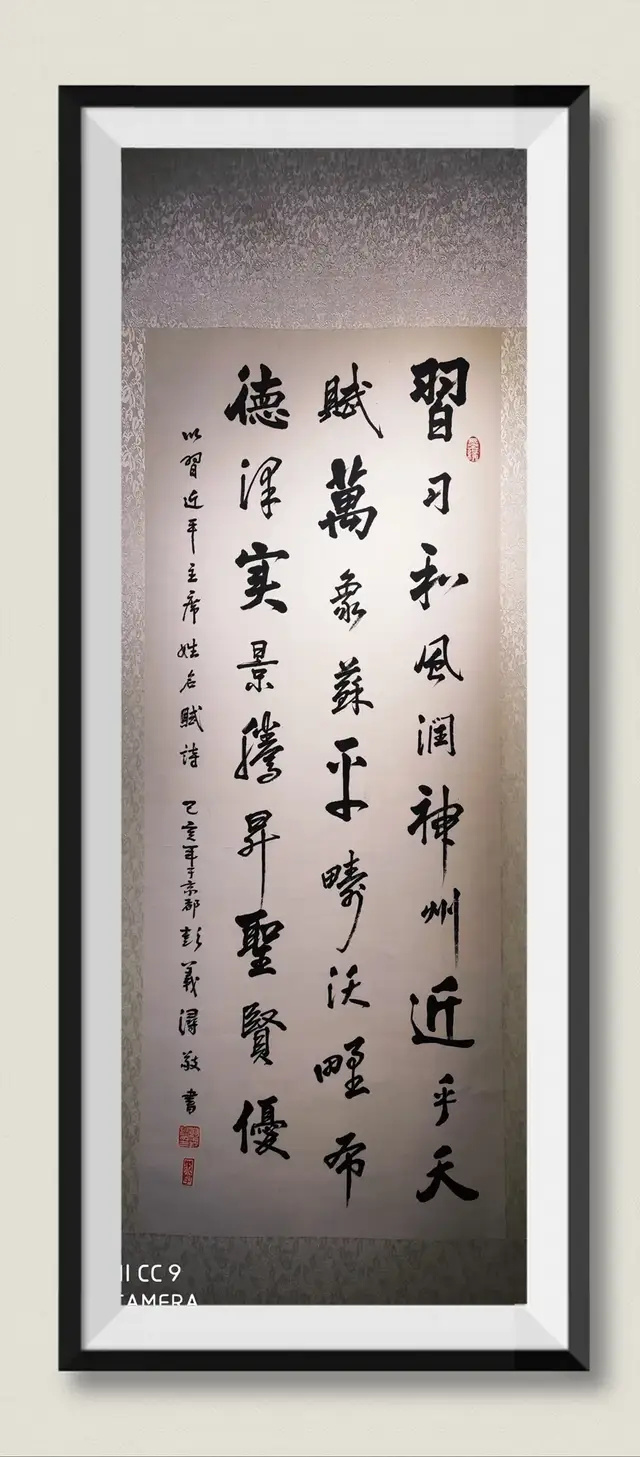 習习和風润神州近乎天
賦萬象蘇平疇沃野布
德泽实景騰昇聖賢優
以習近平主席姓名賦詩 己亥年于京都彭義潯敬書
II CC 9
CAMERA